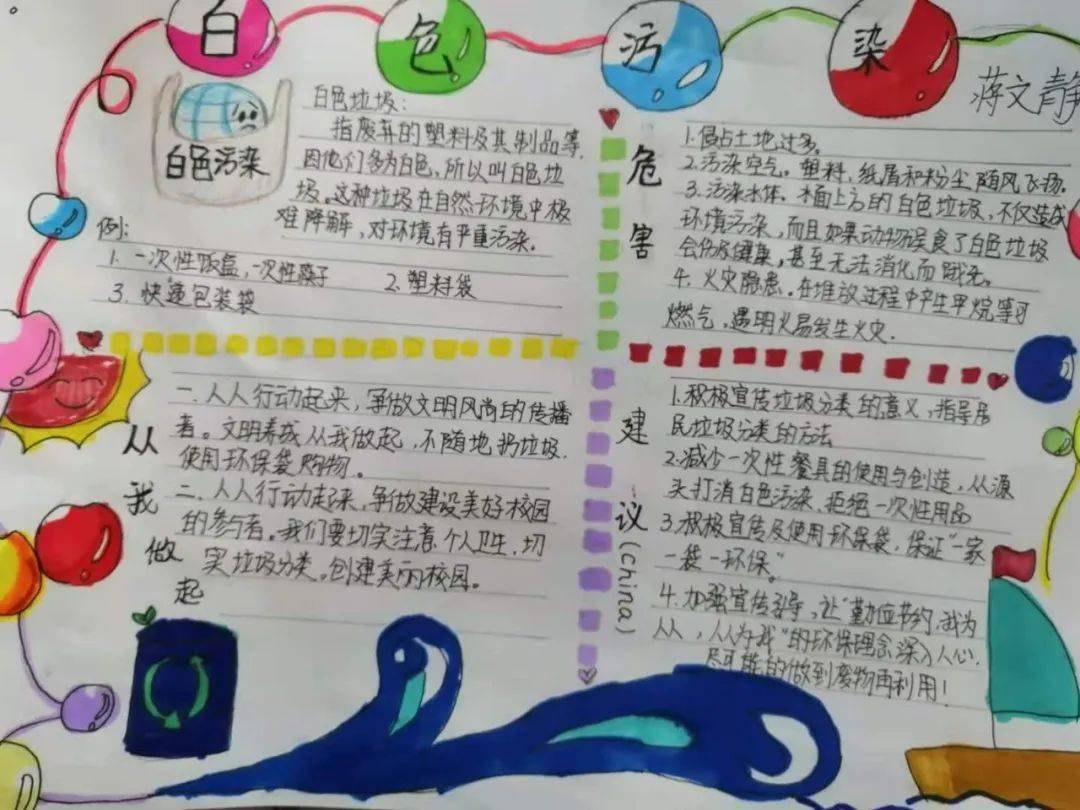 白色污染
蒋文静
白色污染
白色垃圾:
指废弃的塑料及其制品等,
因他们多为白色,所以叫白色垃
圾。这种垃圾在自然环境中极
难降解,对环境有严重污染。
例:
1. 一次性饭盒,一次性筷子 2.塑料袋
3. 快递包装袋
危害
1.侵占土地过多。
2.污染空气。塑料,纸屑和粉尘随风飞扬.
3.污染水体。水面上方的白色垃圾,不仅造成
环境污染,而且如果动物误食了白色垃圾
会伤及健康,甚至无法消化而饿死。
4.火灾隐患。在堆放过程中产生甲烷等可
燃气,遇明火易发生火灾.
从我做起
一.人人行动起来,争做文明风尚的传播
者。文明养成从我做起,不随地扔垃圾.
使用环保袋购物。
二.人人行动起来,争做建设美好校园
的参与者。我们要切实注意个人卫生,切
实垃圾分类。创建美丽校园。
建议(China)
1.积极宣传垃圾分类的意义,指导居
民垃圾分类的方法
2.减少一次性餐具的使用与创造,从源
头打消白色污染,拒绝一次性用品
3.积极宣传及使用环保袋,保证“一家
一袋一环保”
4.加强宣传引导,让“勤俭节约,我为
人人,人人为我”的环保理念深入人心.
尽可能的做到废物再利用!